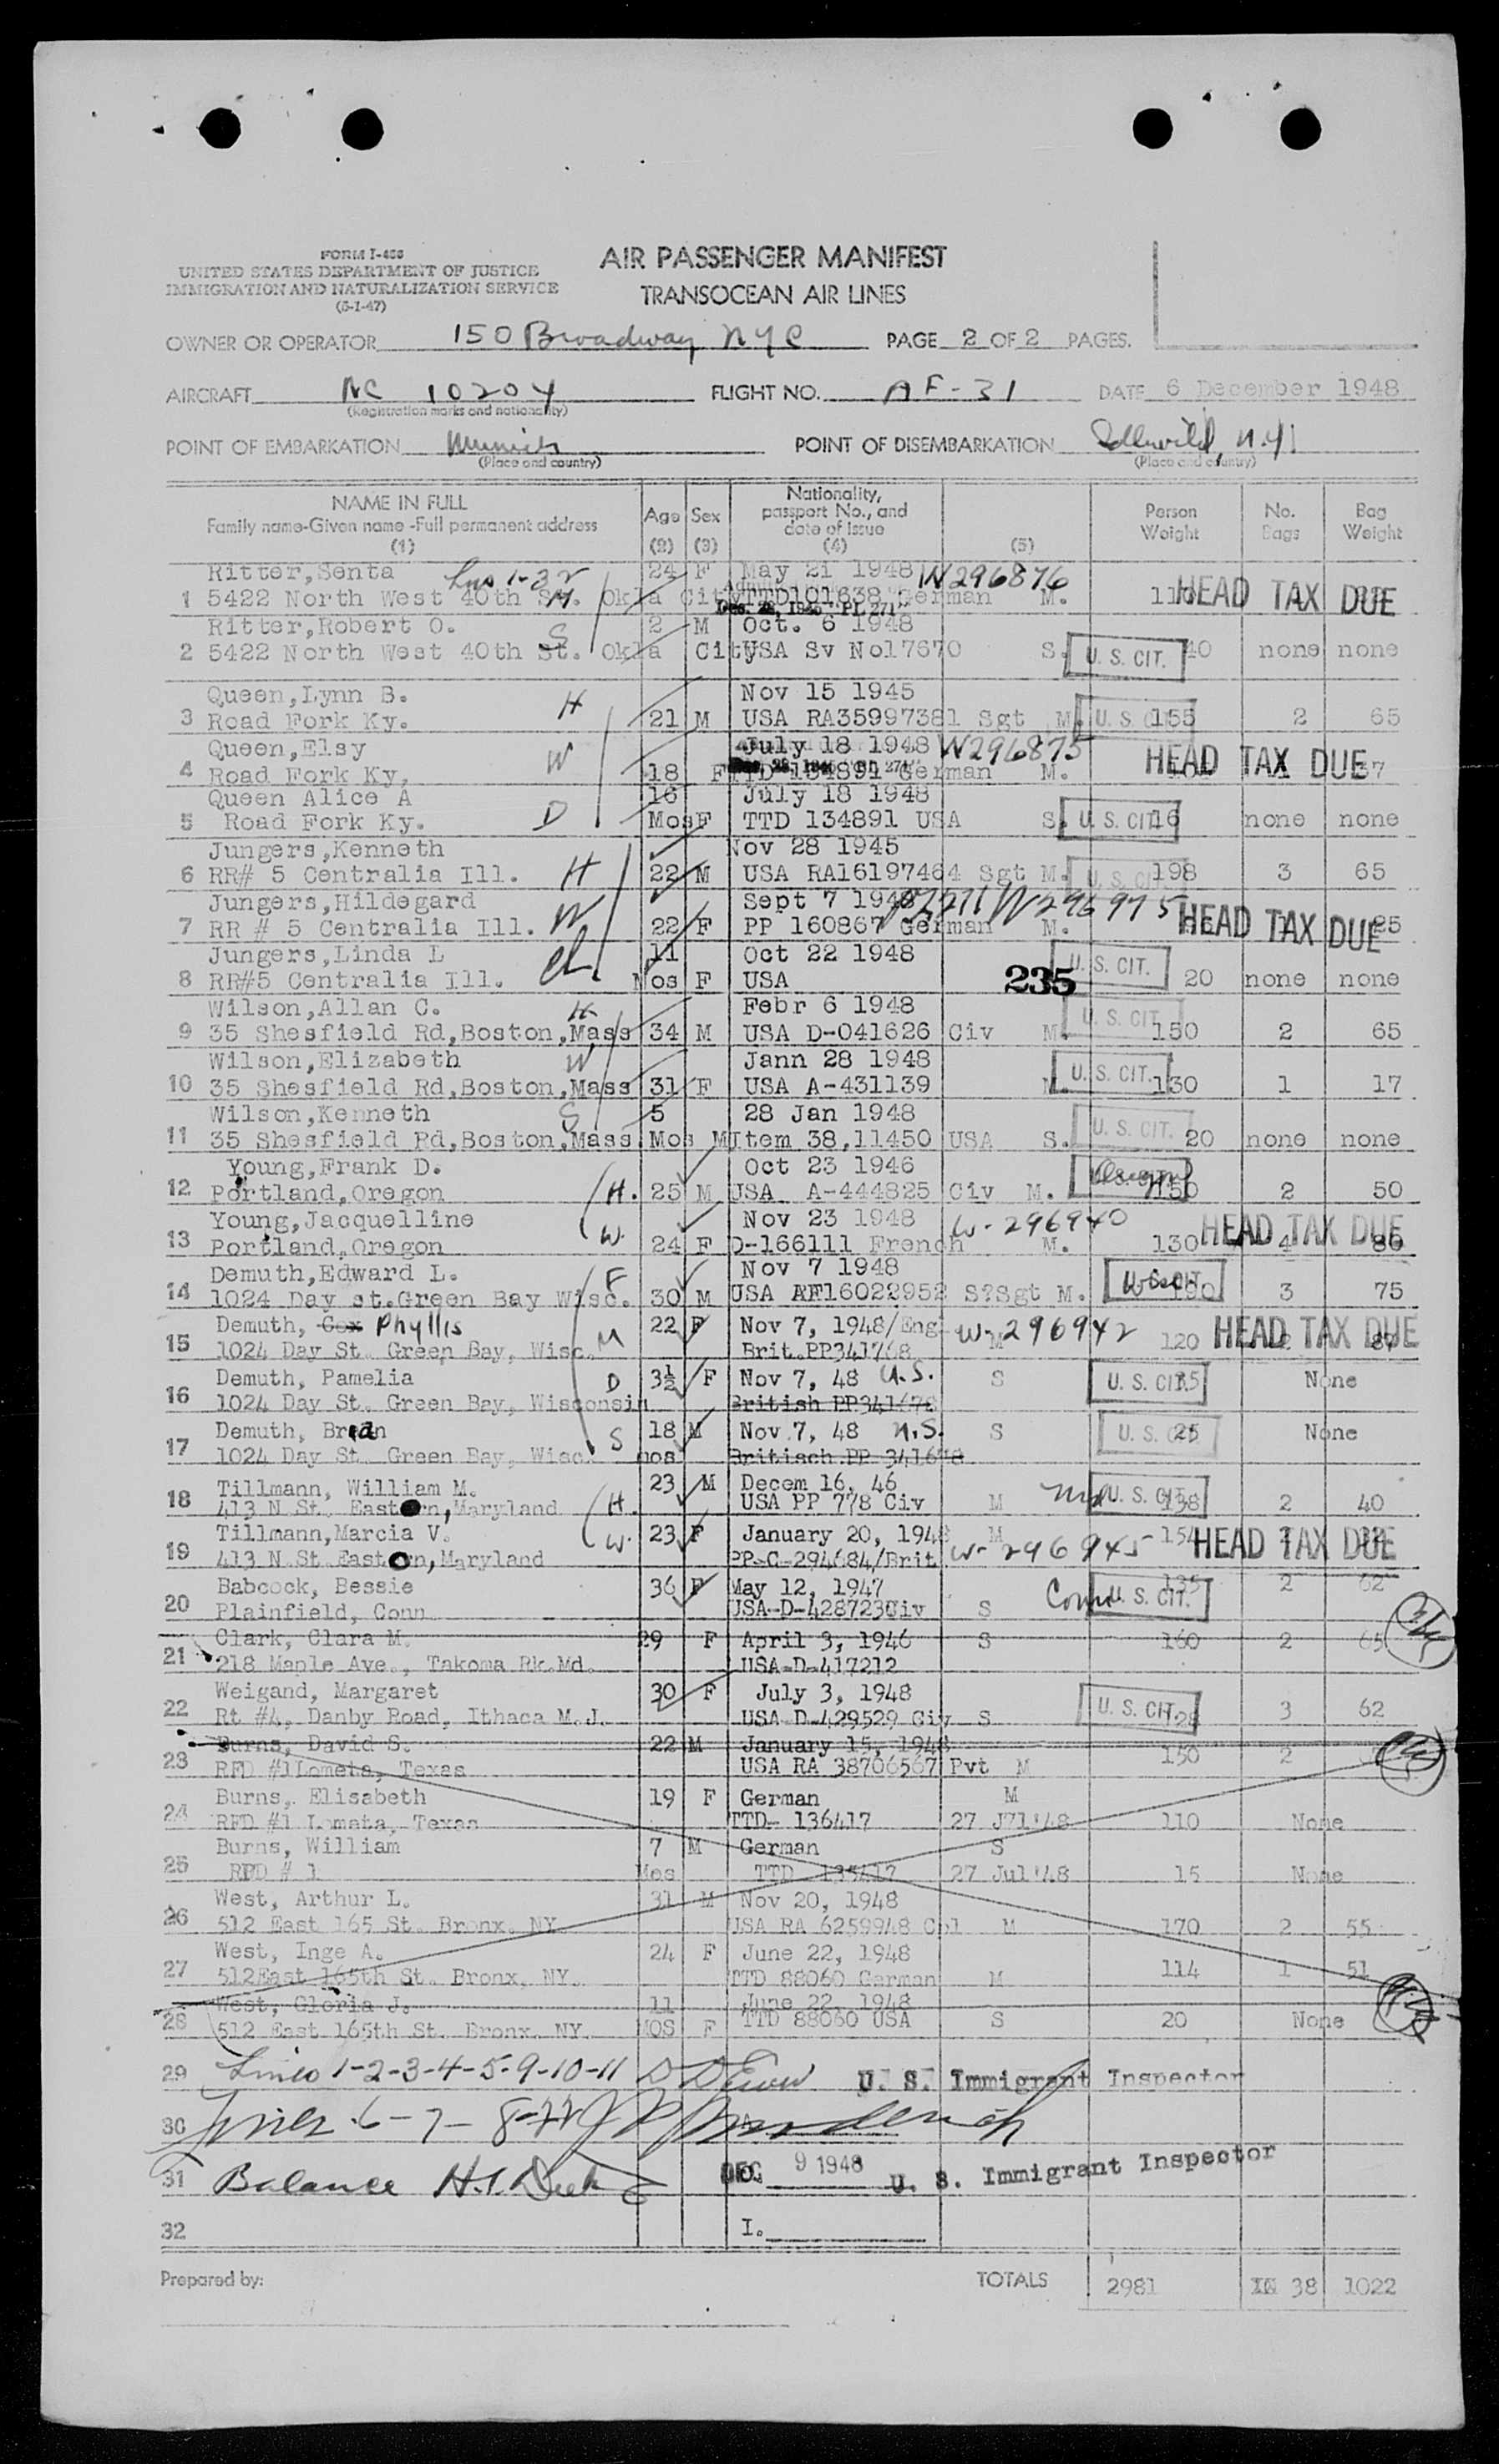 FORM I-466
UNITED STATES DEPARTMENT OF JUSTICE
IMMIGRATION AND NATURALIZATION SERVICE
(5-1-47)
AIR PASSENGER MANIFEST
TRANSOCEAN AIR LINES
OWNER OR OPERATOR 150 Broadway NYC PAGE 2 OF 2 PAGES.
AIRCRAFT NC 10204 FLIGHT NO. AF-31 DATE 6 December 1948
(Registration marks and nationality)
POINT OF EMBARKATION Munich POINT OF DISEMBARKATION Idlewild, N.Y.
(Place and country) (Place and country)
NAME IN FULL Age Sex Nationality, passport No., and date of issue Person Weight No. Bags Bag Weight
Family name-Given name-Full permanent address
(1) (2) (3) (4) (5)
Ritter,Senta 24 F May 21 1948 W296876
1 5422 North West 40th St. Okla City TTD101638 German M. HEAD TAX DUE
Dec. 28, 1945 "PL 271"
Ritter,Robert O. S 2 M Oct. 6 1948
2 5422 North West 40th St. Okla City USA Sv No17670 S. U. S. CIT. 40 none none
Queen,Lynn B. H Nov 15 1945
3 Road Fork Ky. 21 M USA RA35997381 Sgt M. U. S. CIT. 155 2 65
Queen,Elsy W July 18 1948 W296875
4 Road Fork Ky, 18 F TTD 134891 German M. HEAD TAX DUE
Queen Alice A 16 July 18 1948
5 Road Fork Ky. D Mos F TTD 134891 USA S. U. S. CIT. 16 none none
Jungers,Kenneth Nov 28 1945
6 RR# 5 Centralia Ill. H 22 M USA RA16197464 Sgt M. U. S. CIT. 198 3 65
Jungers,Hildegard Sept 7 1948 PL271 W296975
7 RR # 5 Centralia Ill. W 22 F PP 160867 German M. HEAD TAX DUE
Jungers,Linda L 11 Oct 22 1948
8 RR#5 Centralia Ill. Ch. Mos F USA 235 U. S. CIT. 20 none none
Wilson,Allan C. H Febr 6 1948
9 35 Shesfield Rd,Boston,Mass 34 M USA D-041626 Civ M. U. S. CIT. 150 2 65
Wilson,Elizabeth W Jann 28 1948
10 35 Shesfield Rd,Boston,Mass 31 F USA A-431139 M. U. S. CIT. 130 1 17
Wilson,Kenneth S 5 28 Jan 1948
11 35 Shesfield Rd,Boston,Mass. Mos M Item 38,11450 USA S. U. S. CIT. 20 none none
Young,Frank D. Oct 23 1946
12 Portland,Oregon H. 25 M USA A-444825 Civ M. 150 2 50
Young,Jacquelline Nov 23 1948 W-296940
13 Portland,Oregon W. 24 F D-166111 French M. 130 4 HEAD TAX DUE
Demuth,Edward L. F Nov 7 1948
14 1024 Day st.Green Bay Wisc. 30 M USA AF16022952 S?Sgt M. U. S. CIT. 190 3 75
Demuth, Cox Phyllis 22 F Nov 7, 1948/Eng W-296942
15 1024 Day St. Green Bay, Wisc. M Brit.PP341768 M 120 2 87 HEAD TAX DUE
Demuth, Pamelia D 3½ F Nov 7, 48 U.S. S U. S. CIT. None
16 1024 Day St. Green Bay, Wisconsin British PP341678
Demuth, Brian 18 M Nov 7, 48 U.S. S U. S. CIT. 25 None
17 1024 Day St. Green Bay, Wisc. S mos Britisch PP 341678
Tillmann, William M. 23 M Decem 16, 46
18 413 N St. Eastern,Maryland H. USA PP 778 Civ M Md U. S. CIT. 138 2 40
Tillmann,Marcia V. 23 F January 20, 1948 M 154 HEAD TAX DUE
19 413 N St Eastern,Maryland W. PP-C-294684/Brit W-296945
Babcock, Bessie 36 F May 12, 1947 135 2 62
20 Plainfield, Conn USA-D-428723Civ S Conn U. S. CIT.
Clark, Clara M. 29 F April 3, 1946 S 160 2 65
21 218 Maple Ave., Takoma Pk.Md. USA-D-417212
Weigand, Margaret 30 F July 3, 1948
22 Rt #4, Danby Road, Ithaca M.J. USA D-429529 Civ S U. S. CIT. 3 62
Burns, David S. 22 M January 15, 1948
23 RFD #1Lometa, Texas USA RA 38706567 Pvt M 150 2
Burns, Elisabeth 19 F German M
24 RFD #1 Lomata, Texas TTD- 136417 27 J71'48 110 None
Burns, William 7 M German S
25 RFD # 1 Mos TTD 27 Jul'48 15 None
West, Arthur L. 31 M Nov 20, 1948
26 512 East 165 St. Bronx. NY USA RA 6259948 Cpl M 170 2 55
West, Inge A. 24 F June 22, 1948
27 512East 165th St. Bronx, NY. TTD 88060 German M 114 1 51
West, Gloria J. 11 June 22, 1948
28 512 East 165th St. Bronx. NY. MOS F TTD 88060 USA S 20 None
29 Lines 1-2-3-4-5-9-10-11 U. S. Immigrant Inspector
30 Lines 6-7-8-22
31 Balance DEC 9 1948 U. S. Immigrant Inspector
32 I.
Prepared by: TOTALS 2981 38 1022